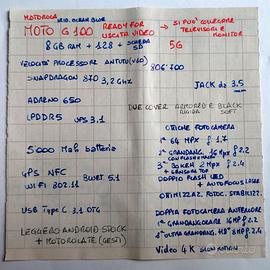 MOTOROLA IRID. OCEAN BLUE
MOTO G 100 READY FOR → SI PUÒ COLLEGARE
USCITA VIDEO TELEVISORI E
MONITOR
8GB RAM + 128 + SCHEDA
SD 5G
VELOCITÀ PROCESSORE ANTUTU (V8) 806.700
SNAPDRAGON 870 3,2 GHz
JACK da 3,5
ADRENO 650
DUE COVER ARMORED E BLACK
RIGIDA SOFT
LPDDR5 UFS 3.1
OTTICHE FOTOCAMERA
1ª 64 MPX f 1.7
2ª GRANDANG. 16 MPX f 2.2
CON FLASH MACRO
5000 MaH batteria
3ª BOKEH 2 MPX f 2.4
+ SENSORE TOF
DOPPIO FLASH LED
+ AUTOFOCUS LASER
GPS NFC
WIFI 802.11 BLUET 5.1
OTTIMIZZAZ. FOTOC. STABILIZZ.
USB TYPE C 3.1 OTG
DOPPIA FOTOCAMERA ANTERIORE
1ª GRANDANGOLARE 16MP f 2.2
2ª ULTRA GRANDANG. 118° 8MP f 2.4
LEGGERO ANDROID STOCK
+ MOTOROLATE (GESTI)
Video 4K SLOW MOTION